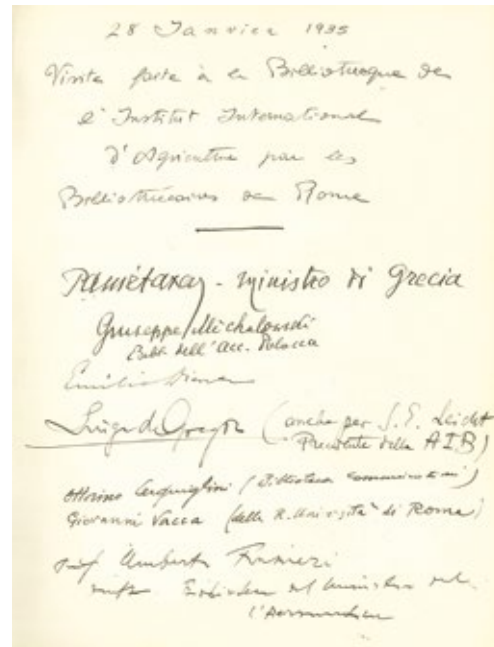 28 Janvier 1935
Visite faite à la Bibliothèque de
l'Institut International
d'Agriculture par les
Bibliothécaires de Rome
Pametaxas - ministro di Grecia
Giuseppe Michalowski
Bibl. dell'Acc. Polacca
Emilio
Luigi de Gregori (anche per S. E. Leicht
Presidente della AIB)
Ottorino Cerquiglini (Biblioteca Comunicazioni)
Giovanni Vacca (della R. Università di Roma)
Umberto
Biblioteca del Ministero del
l'Aeronautica